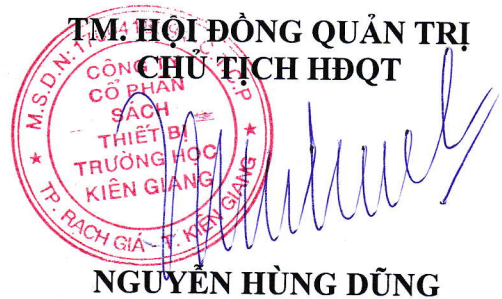 TM. HỘI ĐỒNG QUẢN TRỊ
CHỦ TỊCH HĐQT
M.S.D.N:
C.P
CÔNG TY
CỔ PHẦN
SÁCH
THIẾT BỊ
TRƯỜNG HỌC
KIÊN GIANG
TP. RẠCH GIÁ - T. KIÊN GIANG
NGUYỄN HÙNG DŨNG